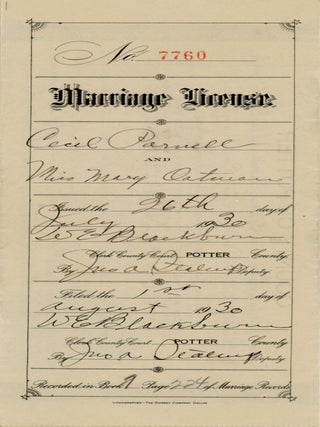 No. 7760
Marriage License
Cecil Parnell
AND
Miss Mary Oatman
Issued the 26th day of
July 1930
W E Blackburn
Clerk County Court POTTER County
By Jno A Deputy
Filed the 1st day of
August 1930
W E Blackburn
Clerk County Court POTTER County
By Jno A Deputy
Recorded in Book 9 Page 224 of Marriage Records
LITHOGRAPHED - THE DORSEY COMPANY DALLAS